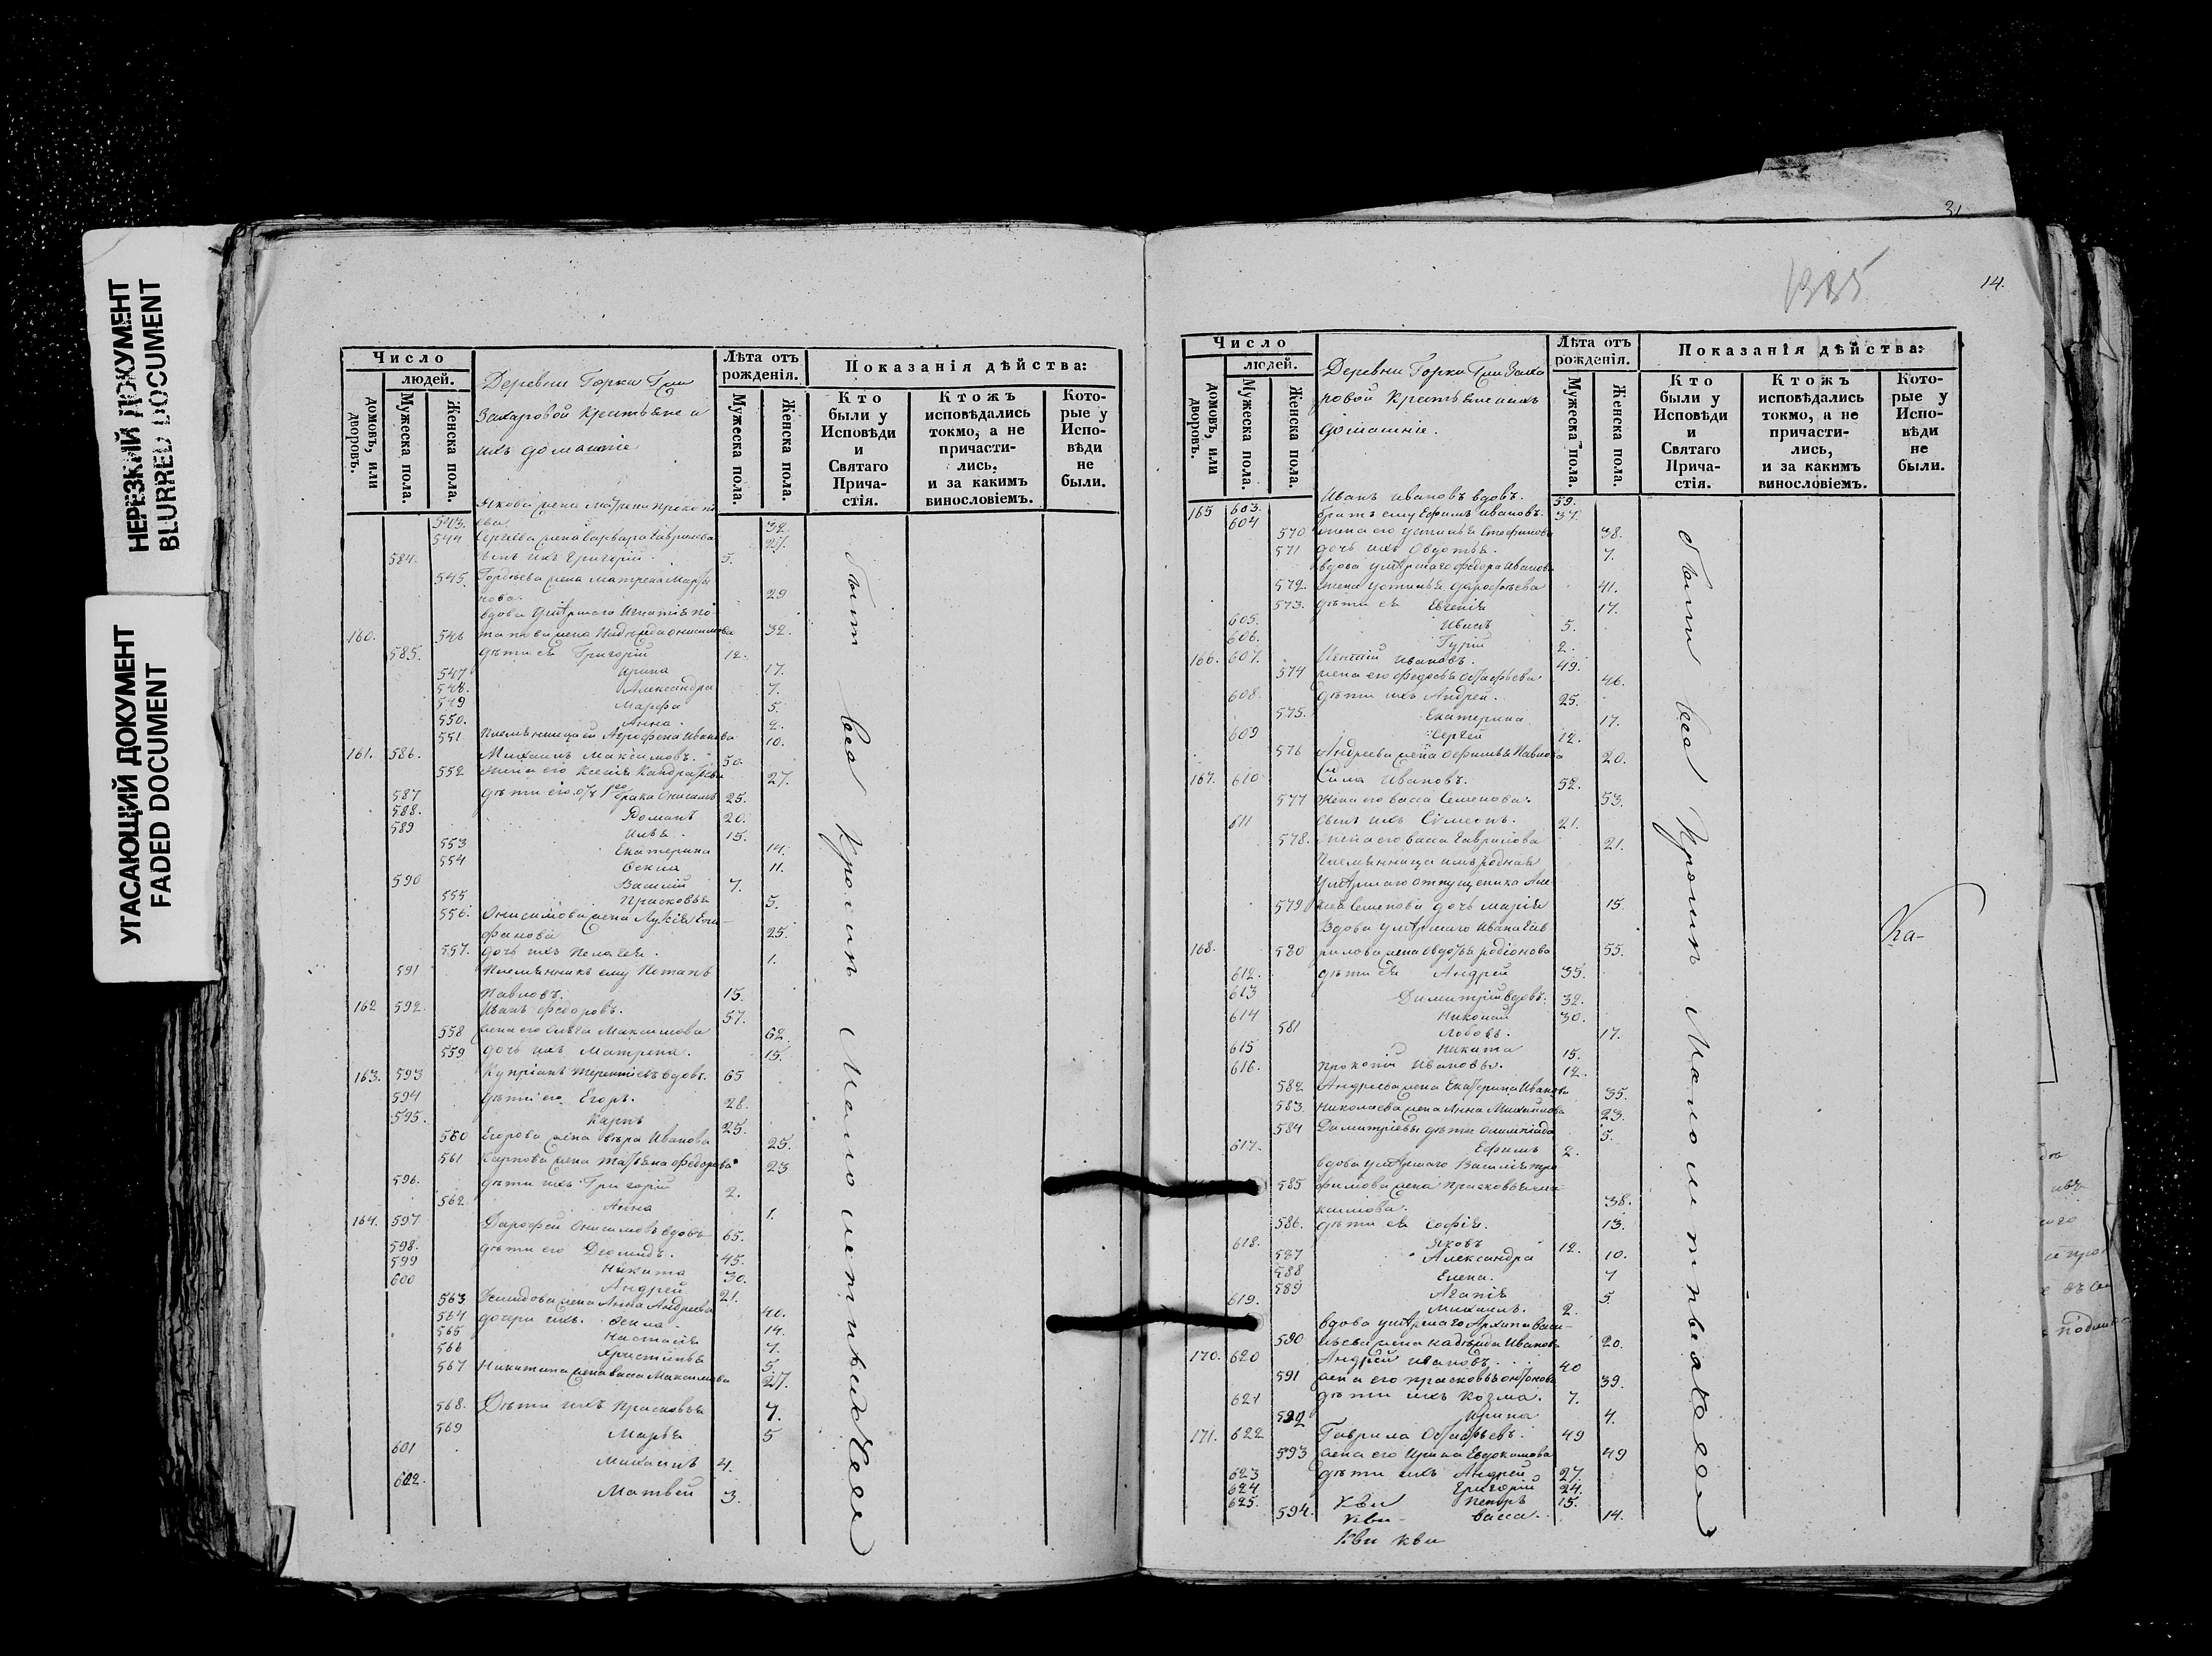 НЕРЕЗКИЙ ДОКУМЕНТ
BLURRED DOCUMENT
УГАСАЮЩИЙ ДОКУМЕНТ
FADED DOCUMENT
Число
людей.
домовъ, или дворовъ.
Мужеска пола.
Женска пола.
Деревни Горки Гжи
Захаровой Крестьяне и
ихъ домашніе
Лѣта отъ рожденія.
Мужеска пола.
Женска пола.
Показанія дѣйства:
Кто были у Исповѣди и Святаго Прича-стія.
Ктожъ исповѣдались токмо, а не причасти-лись, и за какимъ винословіемъ.
Кото-рые у Испо-вѣди не были.
Якова жена Матрена Прокопі
543. ева 32.
544 Сергѣева жена Варвара Гаврилова 27.
584. сынъ ихъ Григорій 5.
545. Гордѣева жена Матрена Марты
нова. 29
вдова умершаго Игнатія По
160. 546 тапова жена Надежда Онисимова 32.
585. дѣти ея Григорій 12.
547 Ирина 17.
548. Александра 7.
549 Марфа 5.
550. Анна. 2.
551 Племянница ей Агрофена Иванова 10.
161. 586. Михаилъ Максимовъ. 50.
552 жена его Ксенія Кандратьева 27.
587 дѣти его отъ 1го брака Онисимъ 25.
588. Романъ 20.
589 Илья. 15.
553 Екатерина 14.
554 Фекла 11.
590 Василій 7.
555 Прасковья 5.
556. Онисимова жена Лукія Епи-
фанова 25.
557. дочь ихъ Пелагея. 1.
591 Племянникъ ему Потапъ
Павловъ. 15.
162 592. Иванъ Федоровъ. 57.
558 жена его Максимова 62.
559 дочь ихъ Матрена. 15.
163. 593 Купріанъ Терентіевъ вдовъ. 65
594 дѣти его Егоръ. 28.
595. Карпъ 25.
560 Егорова жена Вѣра Иванова 25.
561 Карпова жена Татьяна Федорова 23
596. дѣти ихъ Григорій 2.
562. Анна 1.
164. 597 Дарофей Онисимовъ вдовъ 65.
598. дѣти его Демидъ. 45.
599 Никита 30.
600 Андрей 21.
563 Демидова жена Анна Андреева 40.
564 дочери ихъ. Фекла. 14.
565 Настасія 7.
566 Христинья 5.
567 Никитина жена Васса Максимова 27.
568. Дѣти ихъ Прасковья 7.
569 Марья 5
601 Михаилъ 4.
602. Матвей 3.
были всѣ кромѣ Малолетнихъ
31
1335
14.
Число
людей.
домовъ, или дворовъ.
Мужеска пола.
Женска пола.
Деревни Горки Гжи Заха
ровой Крестьяне и ихъ
домашніе.
Лѣта отъ рожденія.
Мужеска пола.
Женска пола.
Показанія дѣйства:
Кто были у Исповѣди и Святаго Прича-стія.
Ктожъ исповѣдались токмо, а не причасти-лись, и за какимъ винословіемъ.
Кото-рые у Испо-вѣди не были.
165 603. Иванъ Ивановъ вдовъ. 59.
604 братъ ему Ефимъ Ивановъ. 37.
570 жена его Устинья 38.
571 дочь ихъ Овдотья. 7.
вдова умершаго Федора Иванова
572. жена Устинья Дарофѣева 41.
573. дѣти ея Евгенія 17.
605. Иванъ 5.
606. Гурій 2.
166. 607. Ивановъ. 49.
574 жена его Федосья Остафьева 46.
608. дѣти ихъ Андрей. 25.
575. Екатерина 17.
609 Сергей 12.
576 Андреева жена Офимья Павлова 20.
167. 610 Сила Ивановъ. 52.
577 жена его Васса Семенова. 53.
611 сынъ ихъ Симеонъ. 21.
578. жена его Васса Гаврилова 21.
Племянница имъ родная
умершаго отпущеника Але
579 ксѣя Семенова дочь Марія 15.
Вдова умершаго Ивана Гав
168. 580 рилова жена Овдотья Родіонова 55.
612. дѣти ея Андрей 35.
613 Димитрій вдовъ. 32.
614 Николай 30.
581 Любовь. 17.
615 Никита 15.
616. Прокопій Ивановы. 12.
582 Андреева жена Екатерина Иванова 35.
583. Николаева жена Анна Михайлова 23.
584 Димитріевы дѣти Олимпіада 5.
617. Ефимъ 2.
вдова умершаго Василія Тро
585 фимова жена Прасковья Ма
ксимова. 38.
586. дѣти ея Софія. 13.
618. Яковъ 12.
587 Александра 10.
588 Елена. 7
589 Агапія 5.
619. Михаилъ. 2.
вдова умершаго Архипа Васи-
590 льева жена Надежда Иванова 20.
170. 620 Андрей Ивановъ. 40
591 жена его Прасковья Онтонова 39.
621 дѣти ихъ Козма. 7.
592 Ирина 4.
171. 622 Гаврила Остафьевъ. 49
593 жена его Ирина Евдокимова 49
623 дѣти ихъ Андрей 27.
624 Григорій 24.
625. Петръ 15.
594. Васса. 14.
Кви
Кви
Кви кви
были всѣ кромѣ Малолетнихъ
Ка-